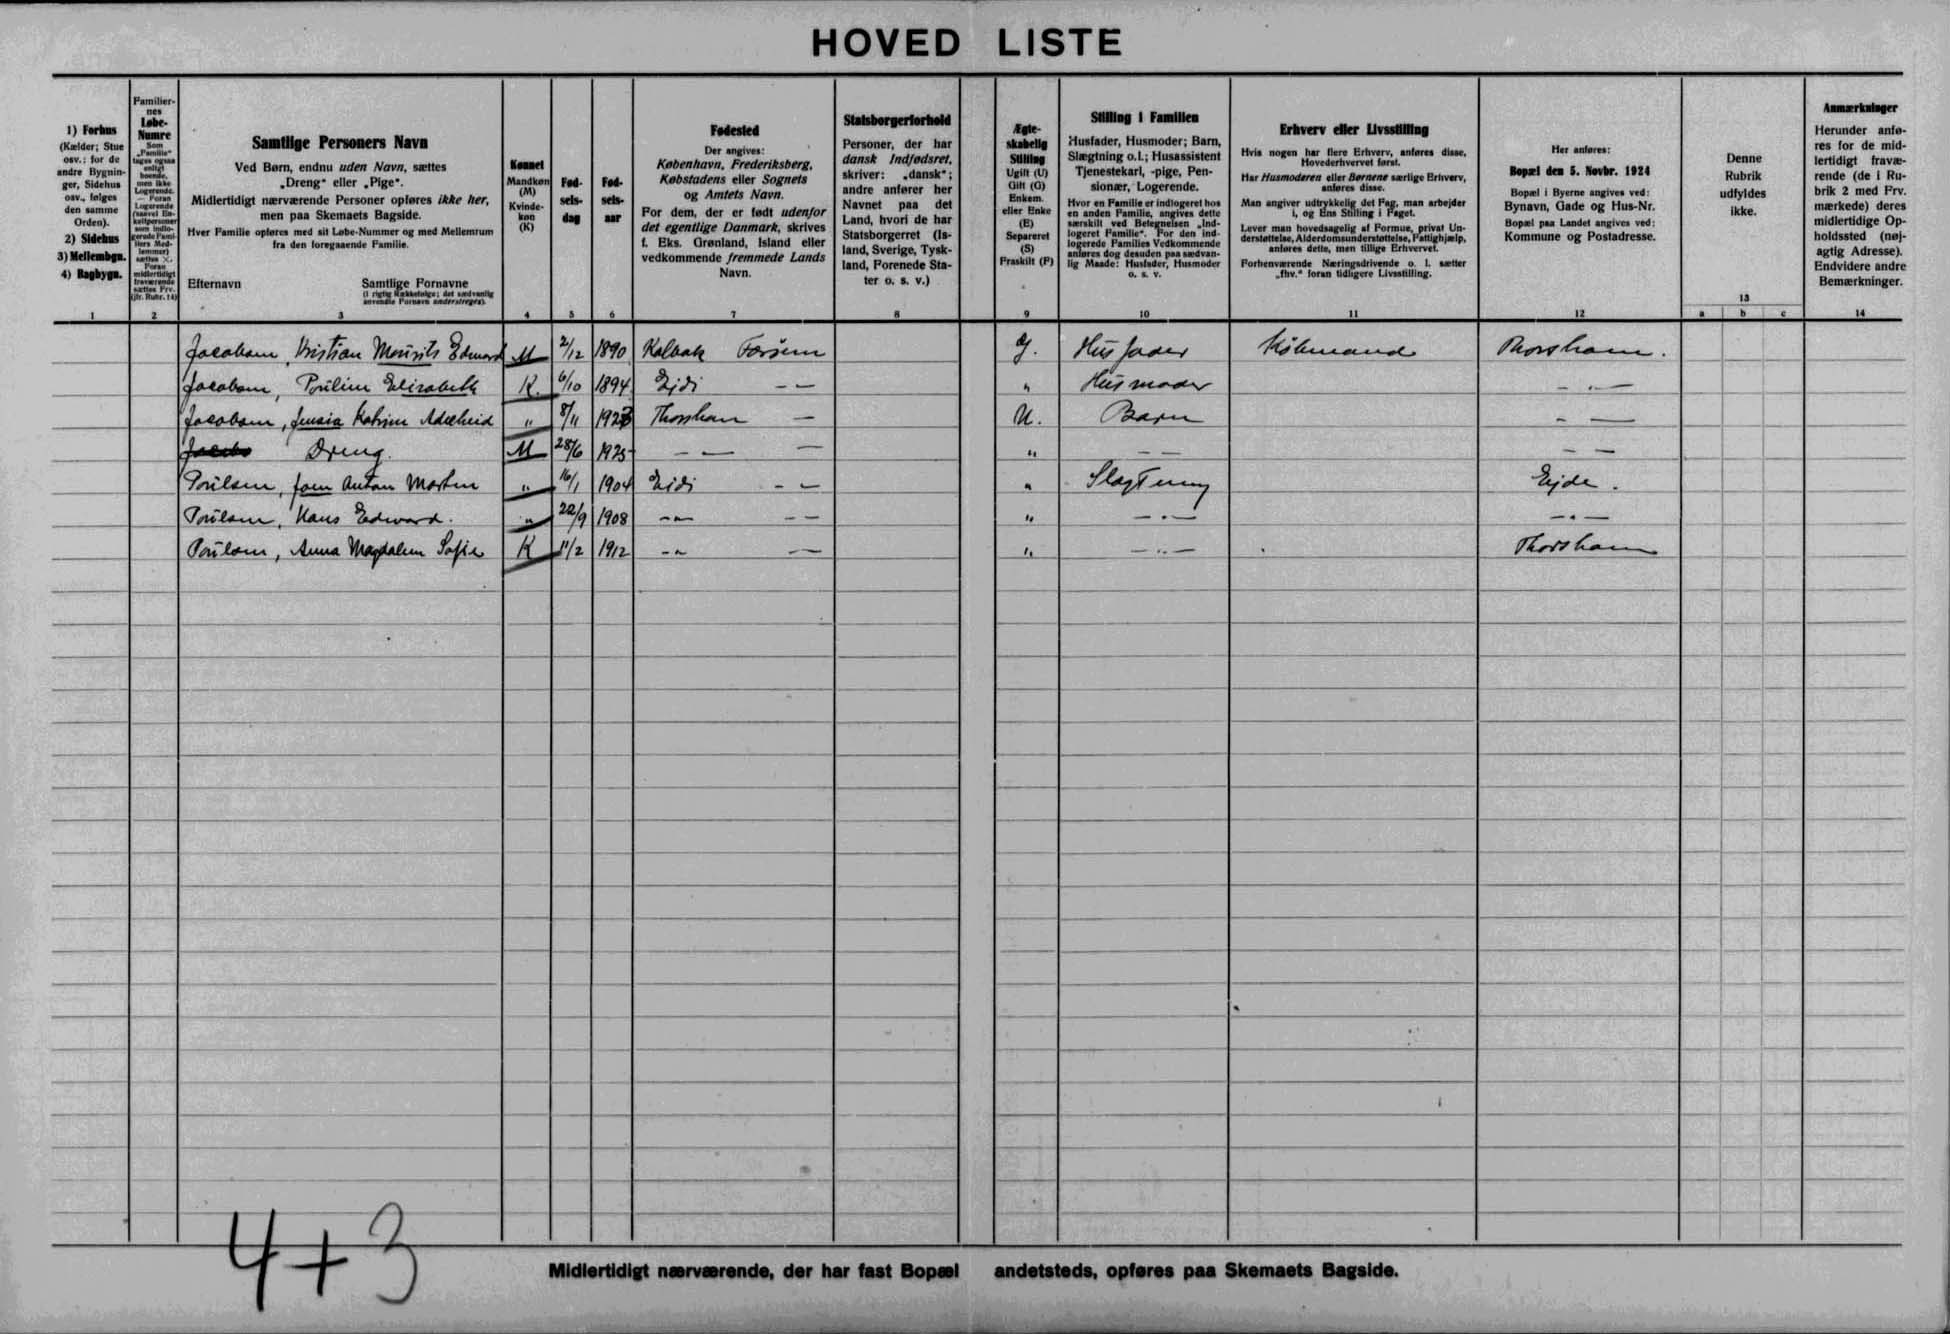 HOVED LISTE
1) Forhus
(Kælder; Stue
osv.; for de
andre Bygnin-
ger, Sidehus
osv., følges
den samme
Orden).
2) Sidehus
3) Mellembgn.
4) Bagbygn.
1
Familier-
nes
Løbe-
Numre
Som
„Familie“
tages ogsaa
enligt
boende,
men ikke
Logerende.
— Foran
Logerende
(saavel En-
keltpersoner
som indlo-
gerede Fami-
liers Med-
lemmer)
sættes ×.
Foran
midlertidigt
fraværende
sættes Frv.
(jfr. Rubr. 14)
2
Samtlige Personers Navn
Ved Børn, endnu uden Navn, sættes
„Dreng“ eller „Pige“.
Midlertidigt nærværende Personer opføres ikke her,
men paa Skemaets Bagside.
Hver Familie opføres med sit Løbe-Nummer og med Mellemrum
fra den foregaaende Familie.
Efternavn Samtlige Fornavne
(i rigtig Rækkefølge; det sædvanlig
anvendte Fornavn understreges).
3
Kønnet
Mandkøn
(M)
Kvinde-
køn
(K)
4
Fød-
sels-
dag
5
Fød-
sels-
aar
6
Fødested
Der angives:
København, Frederiksberg,
Købstadens eller Sognets
og Amtets Navn.
For dem, der er født udenfor
det egentlige Danmark, skrives
f. Eks. Grønland, Island eller
vedkommende fremmede Lands
Navn.
7
Statsborgerforhold
Personer, der har
dansk Indfødsret,
skriver: „dansk“;
andre anfører her
Navnet paa det
Land, hvori de har
Statsborgerret (Is-
land, Sverige, Tysk-
land, Forenede Sta-
ter o. s. v.)
8
Ægte-
skabelig
Stilling
Ugift (U)
Gift (G)
Enkem.
eller Enke
(E)
Separeret
(S)
Fraskilt (F)
9
Stilling i Familien
Husfader, Husmoder; Barn,
Slægtning o.l.; Husassistent
Tjenestekarl, -pige, Pen-
sionær, Logerende.
Hvor en Familie er indlogeret hos
en anden Familie, angives dette
særskilt ved Betegnelsen „Ind-
logeret Familie“. For den ind-
logerede Families Vedkommende
anføres dog desuden paa sædvan-
lig Maade: Husfader, Husmoder
o. s. v.
10
Erhverv eller Livsstilling
Hvis nogen har flere Erhverv, anføres disse,
Hovederhvervet først.
Har Husmoderen eller Børnene særlige Erhverv,
anføres disse.
Man angiver udtrykkelig det Fag, man arbejder
i, og Ens Stilling i Faget.
Lever man hovedsagelig af Formue, privat Un-
derstøttelse, Alderdomsunderstøttelse, Fattighjælp,
anføres dette, men tillige Erhvervet.
Forhenværende Næringsdrivende o. l. sætter
„fhv.“ foran tidligere Livsstilling.
11
Her anføres:
Bopæl den 5. Novbr. 1924
Bopæl i Byerne angives ved:
Bynavn, Gade og Hus-Nr.
Bopæl paa Landet angives ved:
Kommune og Postadresse.
12
Denne
Rubrik
udfyldes
ikke.
13
a b c
Anmærkninger
Herunder anfø-
res for de mid-
lertidigt fravæ-
rende (de i Ru-
brik 2 med Frv.
mærkede) deres
midlertidige Op-
holdssted (nøj-
agtig Adresse).
Endvidere andre
Bemærkninger.
14
Jacobsen, Kristian Mourits Edward M 2/12 1890 Kalbak Færøerne G. Husfader Købmand Thorshavn.
Jacobsen, Pouline Elisabeth K. 6/10 1894 Eidi — — " Husmoder — " —
Jacobsen, Jensia Katrine Adelheid " 8/11 1923 Thorshavn — U. Barn — —
Jacobs Dreng. M 28/6 1925 — — — " — — — —
Poulsen, Joen Anton Morten " 16/1 1904 Eidi — — " Slægtning Ejde.
Poulsen, Hans Edward. " 22/9 1908 — " — — " — " — — " —
Poulsen, Anna Magdalene Sofie K 11/2 1912 — " — " — " — Thorshavn
4+3
Midlertidigt nærværende, der har fast Bopæl andetsteds, opføres paa Skemaets Bagside.